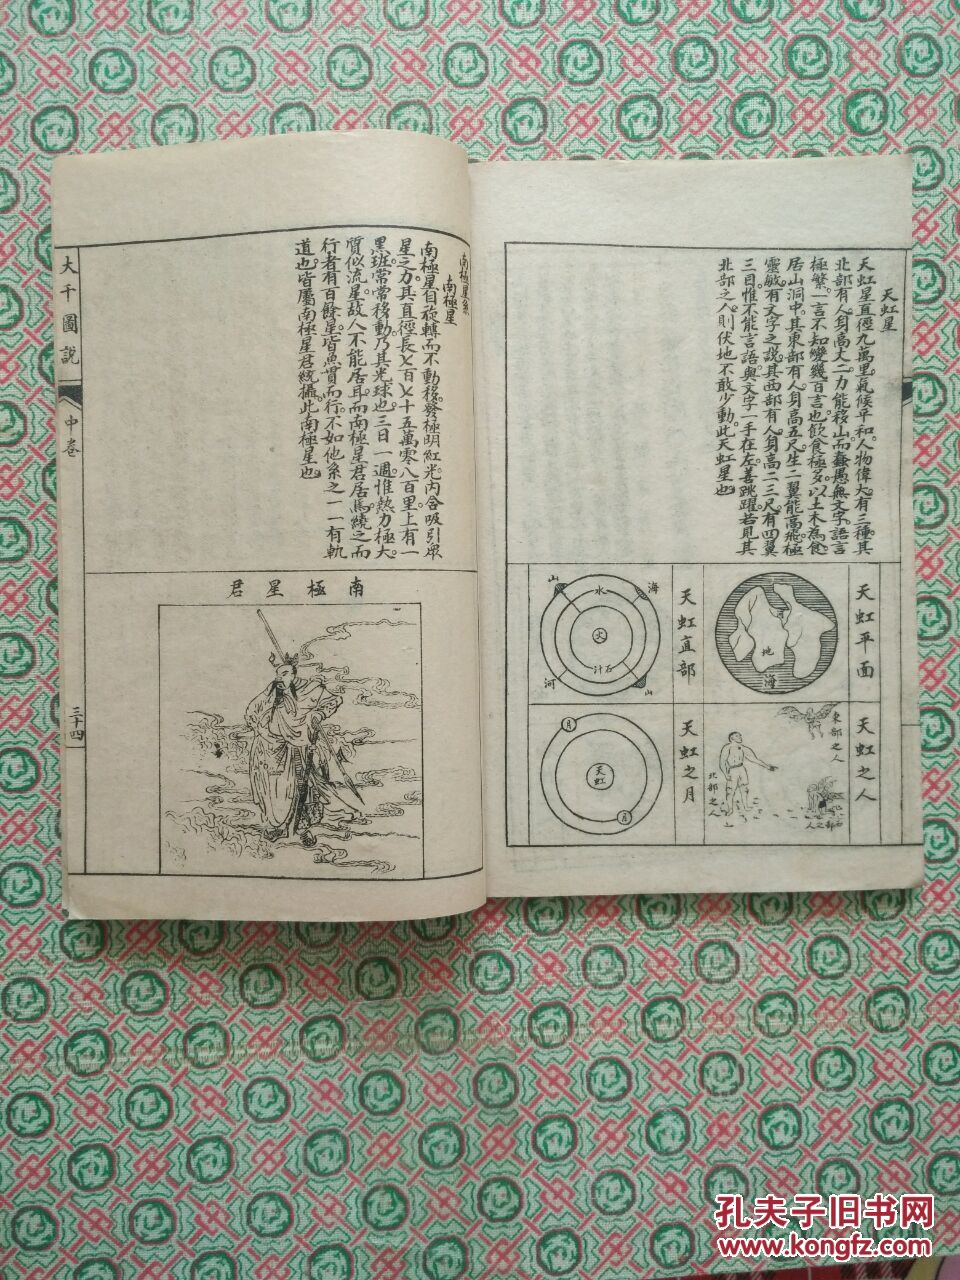 天虹星
天虹星直徑九萬里。氣候平和。人物偉大。有三種。其
北部有人。身高丈二。力能移山。而蠢愚無文字。語言
極繁。一言不知變幾百言也。飲食極多。以土木為食。
居山洞中。其東部有人。身高五尺。生二翼。能高飛。極
靈敏。有文字之說。其西部有人。身高二三尺。有四翼
三目。惟不能言語與文字。一手在左。善跳躍。若見其
北部之人。則伏地不敢少動。此天虹星也。
天虹平面
地
海
天虹直部
山
海
水
火
石
汁
河
山
天虹之人
東部之人
北部之人
西部之人
天虹之月
月
天虹
月
南極星系
南極星
南極星自旋轉而不動移。發極明紅光。內含吸引眾
星之力。其直徑長七百七十五萬零八百里。上有一
黑班。常常移動。乃其光球也。三日一週。惟熱力極大。
質似流星。故人不能居耳。而南極星君居焉。繞之而
行者有百餘星。皆魚貫而行。不如他系之一一有軌
道也。皆屬南極星君統攝。此南極星也。
南極星君
大千圖說
中卷
三十四
孔夫子旧书网
www.kongfz.com